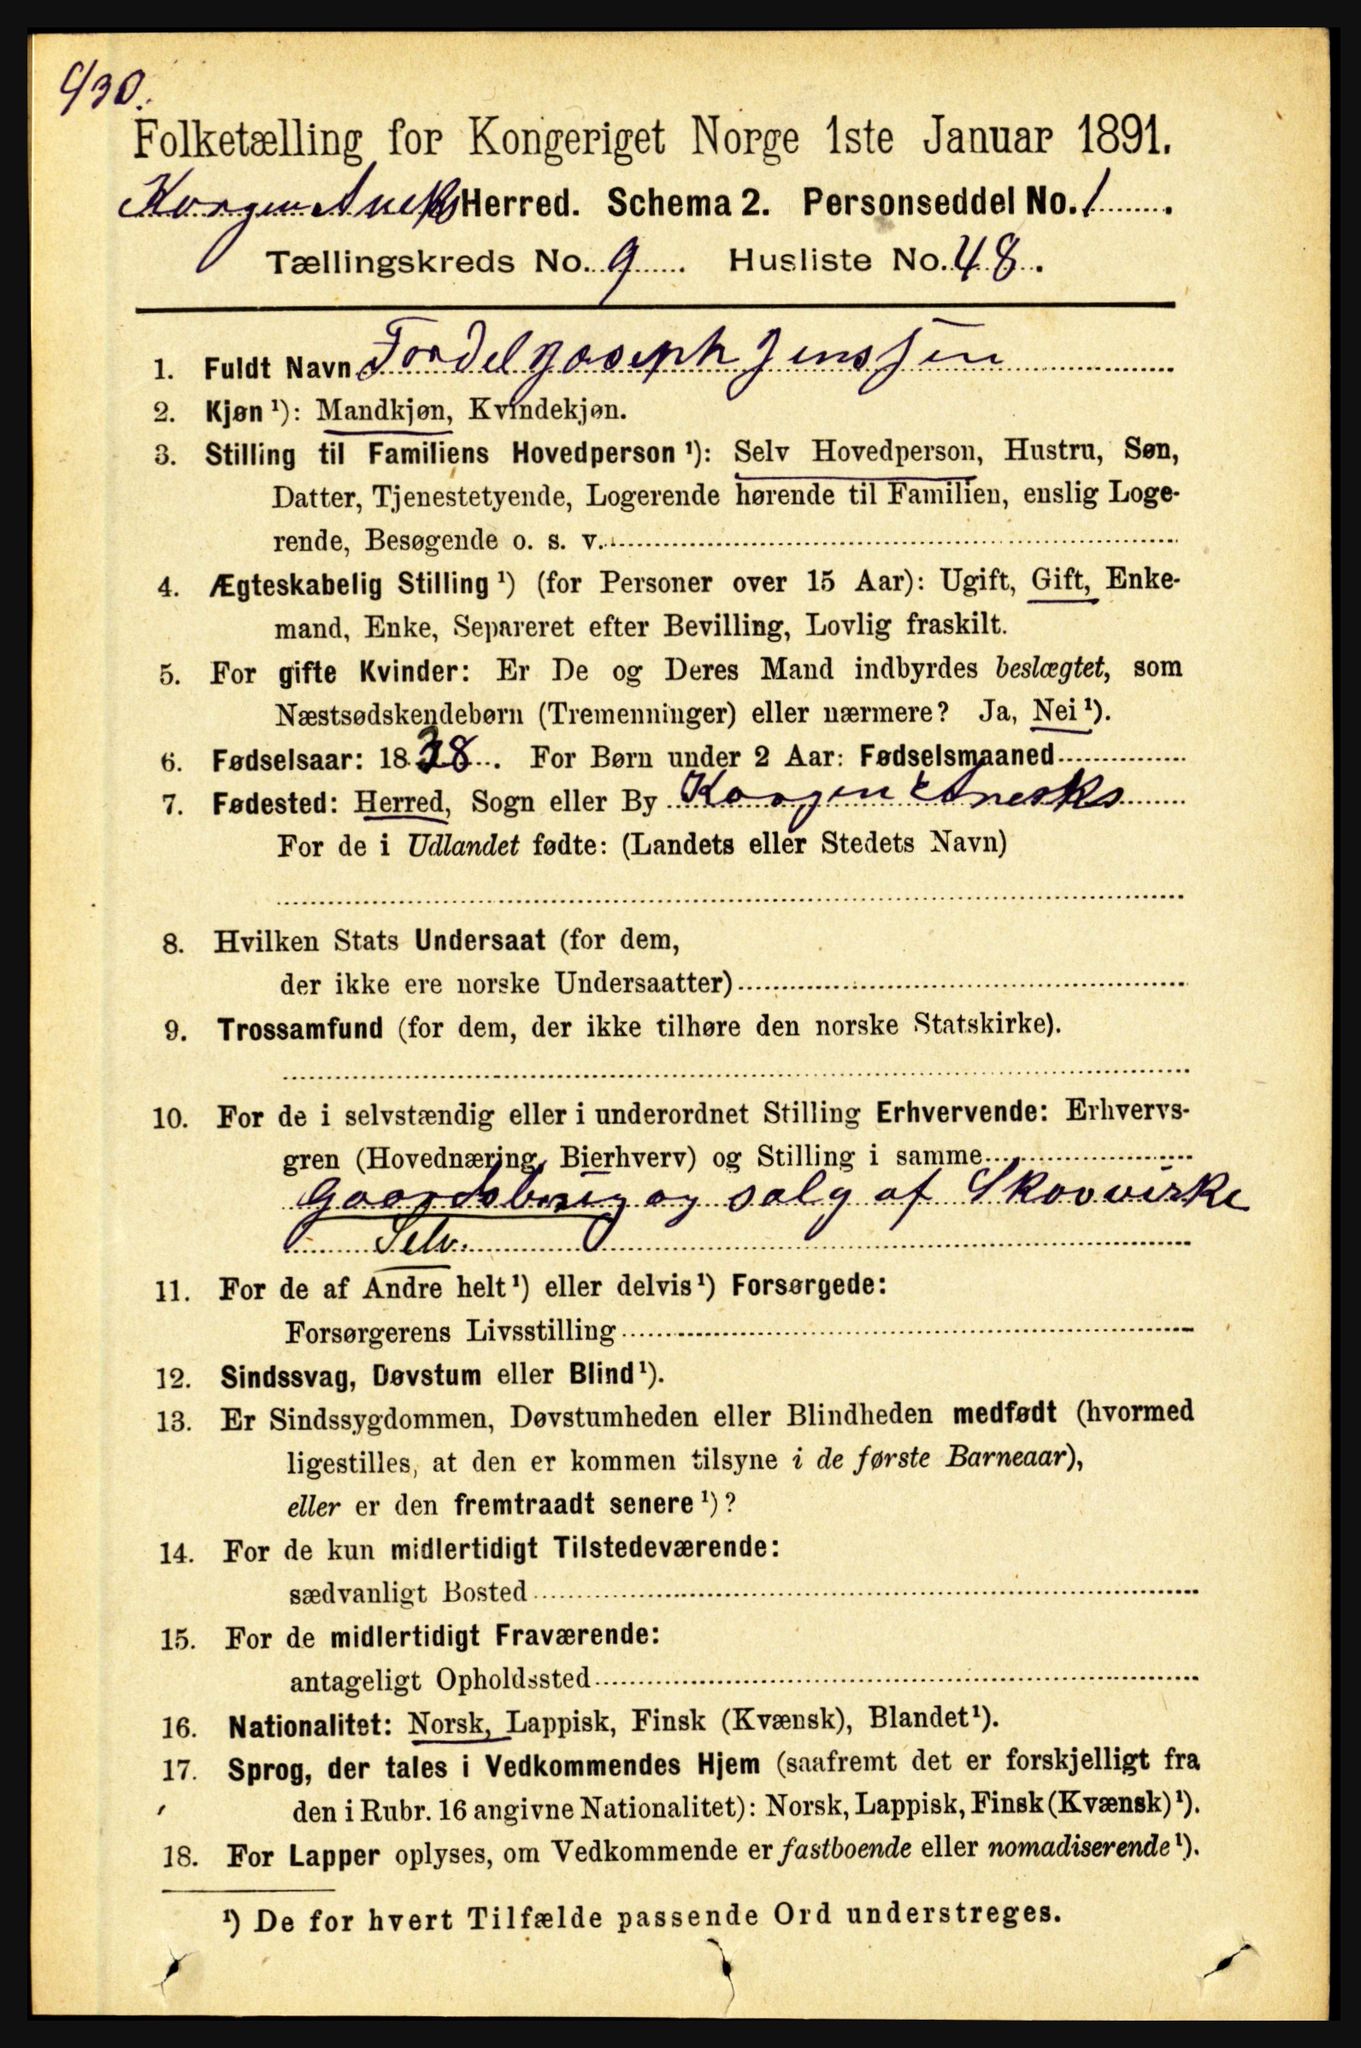 930.
Folketælling for Kongeriget Norge 1ste Januar 1891.
Korgen Aneks Herred. Schema 2. Personseddel No. 1.
Tællingskreds No. 9. Husliste No. 48.
1. Fuldt Navn Fordel Joseph Jenssen
2. Kjøn ¹): Mandkjøn, Kvindekjøn.
3. Stilling til Familiens Hovedperson ¹): Selv Hovedperson, Hustru, Søn,
Datter, Tjenestetyende, Logerende hørende til Familien, enslig Loge-
rende, Besøgende o. s. v.
4. Ægteskabelig Stilling ¹) (for Personer over 15 Aar): Ugift, Gift, Enke-
mand, Enke, Separeret efter Bevilling, Lovlig fraskilt.
5. For gifte Kvinder: Er De og Deres Mand indbyrdes beslægtet, som
Næstsødskendebørn (Tremenninger) eller nærmere? Ja, Nei ¹).
6. Fødselsaar: 1838. For Børn under 2 Aar: Fødselsmaaned
7. Fødested: Herred, Sogn eller By Korgen Aneks
For de i Udlandet fødte: (Landets eller Stedets Navn)
8. Hvilken Stats Undersaat (for dem,
der ikke ere norske Undersaatter)
9. Trossamfund (for dem, der ikke tilhøre den norske Statskirke).
10. For de i selvstændig eller i underordnet Stilling Erhvervende: Erhvervs-
gren (Hovednæring, Bierhverv) og Stilling i samme
Gaardsbrug og salg af Skovvirke
Selv.
11. For de af Andre helt ¹) eller delvis ¹) Forsørgede:
Forsørgerens Livsstilling
12. Sindssvag, Døvstum eller Blind ¹).
13. Er Sindssygdommen, Døvstumheden eller Blindheden medfødt (hvormed
ligestilles, at den er kommen tilsyne i de første Barneaar),
eller er den fremtraadt senere ¹)?
14. For de kun midlertidigt Tilstedeværende:
sædvanligt Bosted
15. For de midlertidigt Fraværende:
antageligt Opholdssted
16. Nationalitet: Norsk, Lappisk, Finsk (Kvænsk), Blandet ¹).
17. Sprog, der tales i Vedkommendes Hjem (saafremt det er forskjelligt fra
den i Rubr. 16 angivne Nationalitet): Norsk, Lappisk, Finsk (Kvænsk) ¹).
18. For Lapper oplyses, om Vedkommende er fastboende eller nomadiserende ¹).
¹) De for hvert Tilfælde passende Ord understreges.